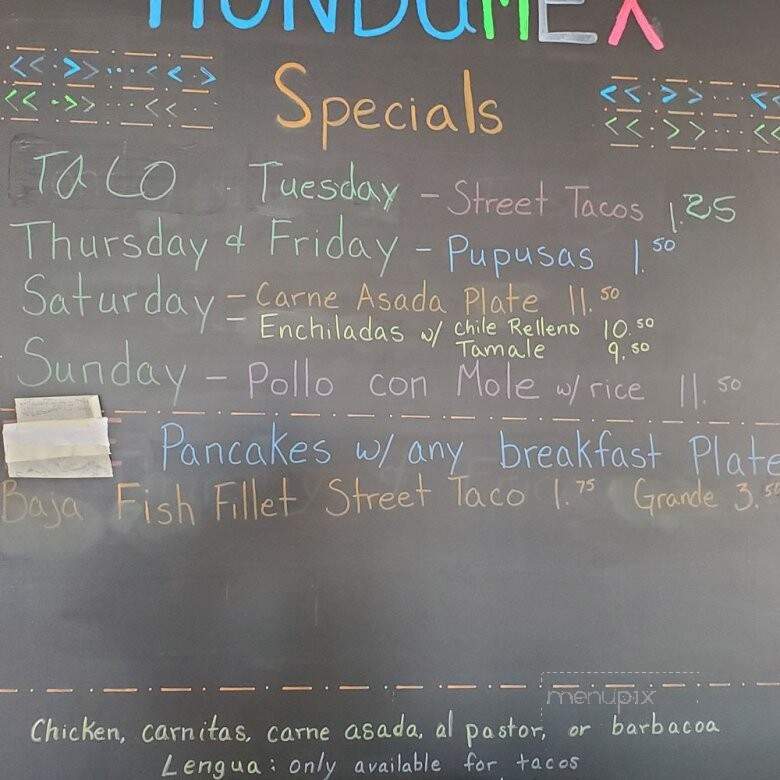 HONDUMEX
Specials
TACO . Tuesday - Street Tacos 1.25
Thursday & Friday - Pupusas 1.50
Saturday - Carne Asada Plate 11.50
- Enchiladas w/ Chile Relleno 10.50
Tamale 9.50
Sunday - Pollo con Mole w/ rice 11.50
Pancakes w/ any breakfast Plate
Baja Fish Fillet Street Taco 1.75 Grande 3.50
menupix
Chicken, carnitas, carne asada, al pastor, or barbacoa
Lengua: only available for tacos